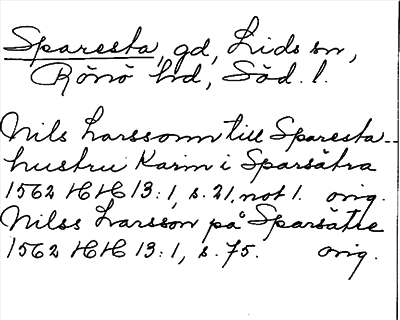 Sparesta, gd, Lids sn,
Rönö hd, Söd. l.
Nils Larssonn till Sparesta...
hustru Karin i Sparsätra
1562 HH 13:1, s. 21, not 1. orig.
Nilss Larsson på Sparsätre
1562 HH 13:1, s. 75. orig.